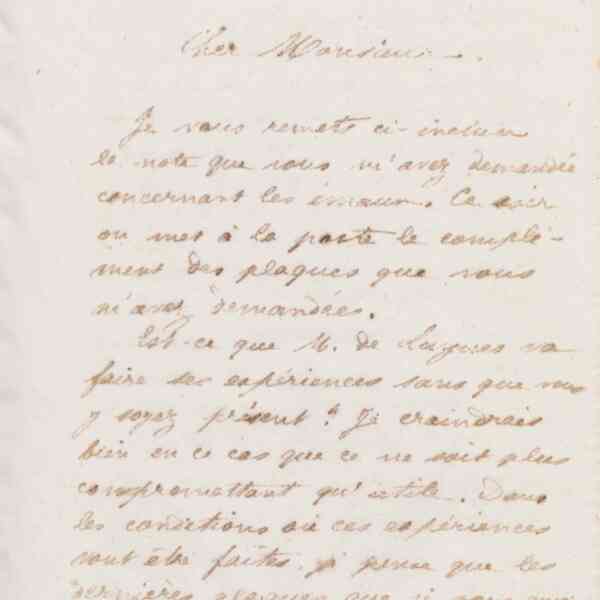 Cher Monsieur.
Je vous remets ci-inclus
la note que vous m'avez demandée
concernant les émaux. Ce soir
on met à la poste le complé-
ment des plaques que vous
m'avez demandées.
Est-ce que M. de Luynes va
faire ses expériences sans que vous
y soyez présent ? Je craindrais
bien en ce cas que ce ne soit plus
compromettant qu'utile. Dans
les conditions où ces expériences
vont être faites, je pense que les
dernières plaques que je vous